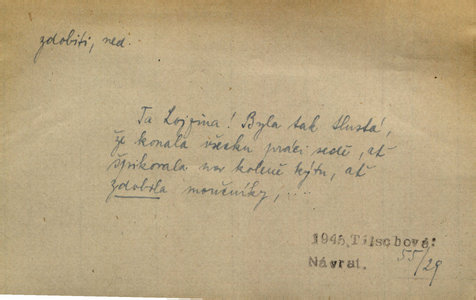 zdobiti, ned.
Ta Lojzina! Byla tak tlustá,
že konala všecku práci sedě, ať
špikovala na koleně kýtu, ať
zdobila moučníky, ...
1945, Tilschová:
Návrat. 55/29